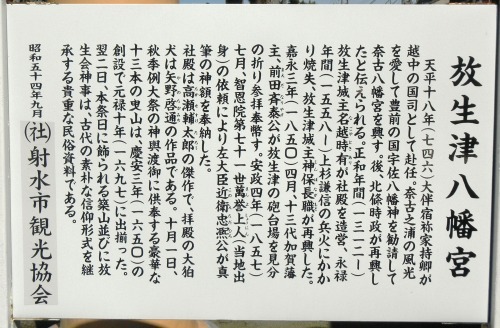 放生津八幡宮
天平十八年(七四六)大伴宿祢家持卿が
越中の国司として赴任。奈古之浦の風光
を愛して豊前の国宇佐八幡神を勧請して
奈古八幡宮を興す。後、北條時政が再興し
たと伝えられる。正和年間(一三一二ー)
放生津城主名越時有が社殿を造営、永禄
年間(一五五八ー)上杉謙信の兵火にかか
り焼失、放生津城主神保長職が再興した。
嘉永三年(一八五〇)四月、十三代加賀藩
主、前田斉泰公が放生津の砲台場を見分
の折り参拝奉幣す。安政四年(一八五七)
七月、智恩院第七十一世萬誉上人(当地出
身)の依頼により左大臣近衛忠凞公が真
筆の神額を奉納した。
社殿は高瀬輔太郎の傑作で、拝殿の大狛
犬は矢野啓通の作品である。十月一日、
秋季例大祭の神輿渡御に供奉する豪華な
十三本の曳山は慶安三年(一六五〇)の
創設で元禄十年(一六九七)に出揃った。
翌二日、本祭日に飾られる築山並びに放
生会神事は、古代の素朴な信仰形式を継
承する貴重な民俗資料である。
昭和五十四年九月 (社)射水市観光協会